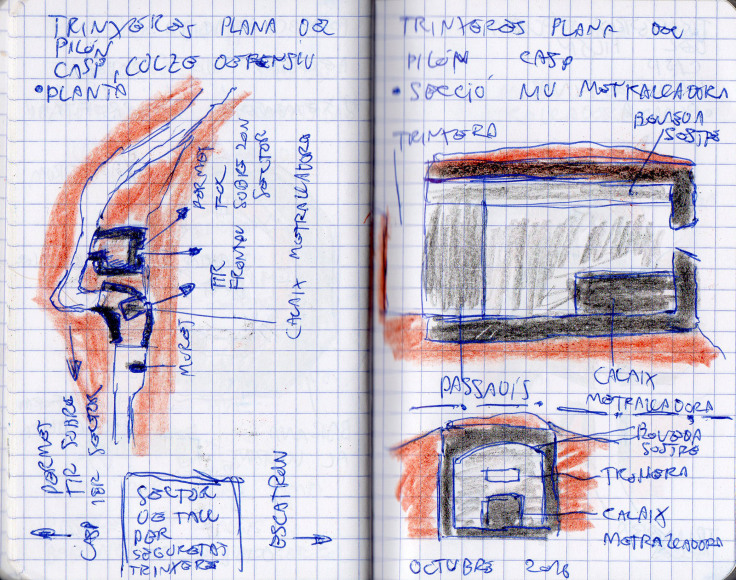 TRINXERES PLANA DEL
PILÓN
CASP, COLZE DEFENSIU
•PLANTA
PERMET
TOC
SOBRE 2ON
SECTOR
TIR
FRONTAL
CALAIX METRALLADORA
MURET
PERMET
TIR SOBRE
1ER SECTOR
CASP
SECTOR
DE TALL
PER
SEGURETAT
TRINXERA
ESCATRON
TRINXERES PLANA DEL
PILÓN CASP
• SECCIÓ NIU METRALLADORA
TRINXERA
BOVEDA
SOSTRE
PASSADÍS
CALAIX
METRALLADORA
BOVEDA
SOSTRE
TRONERA
CALAIX
METRALLADORA
OCTUBRE 2016